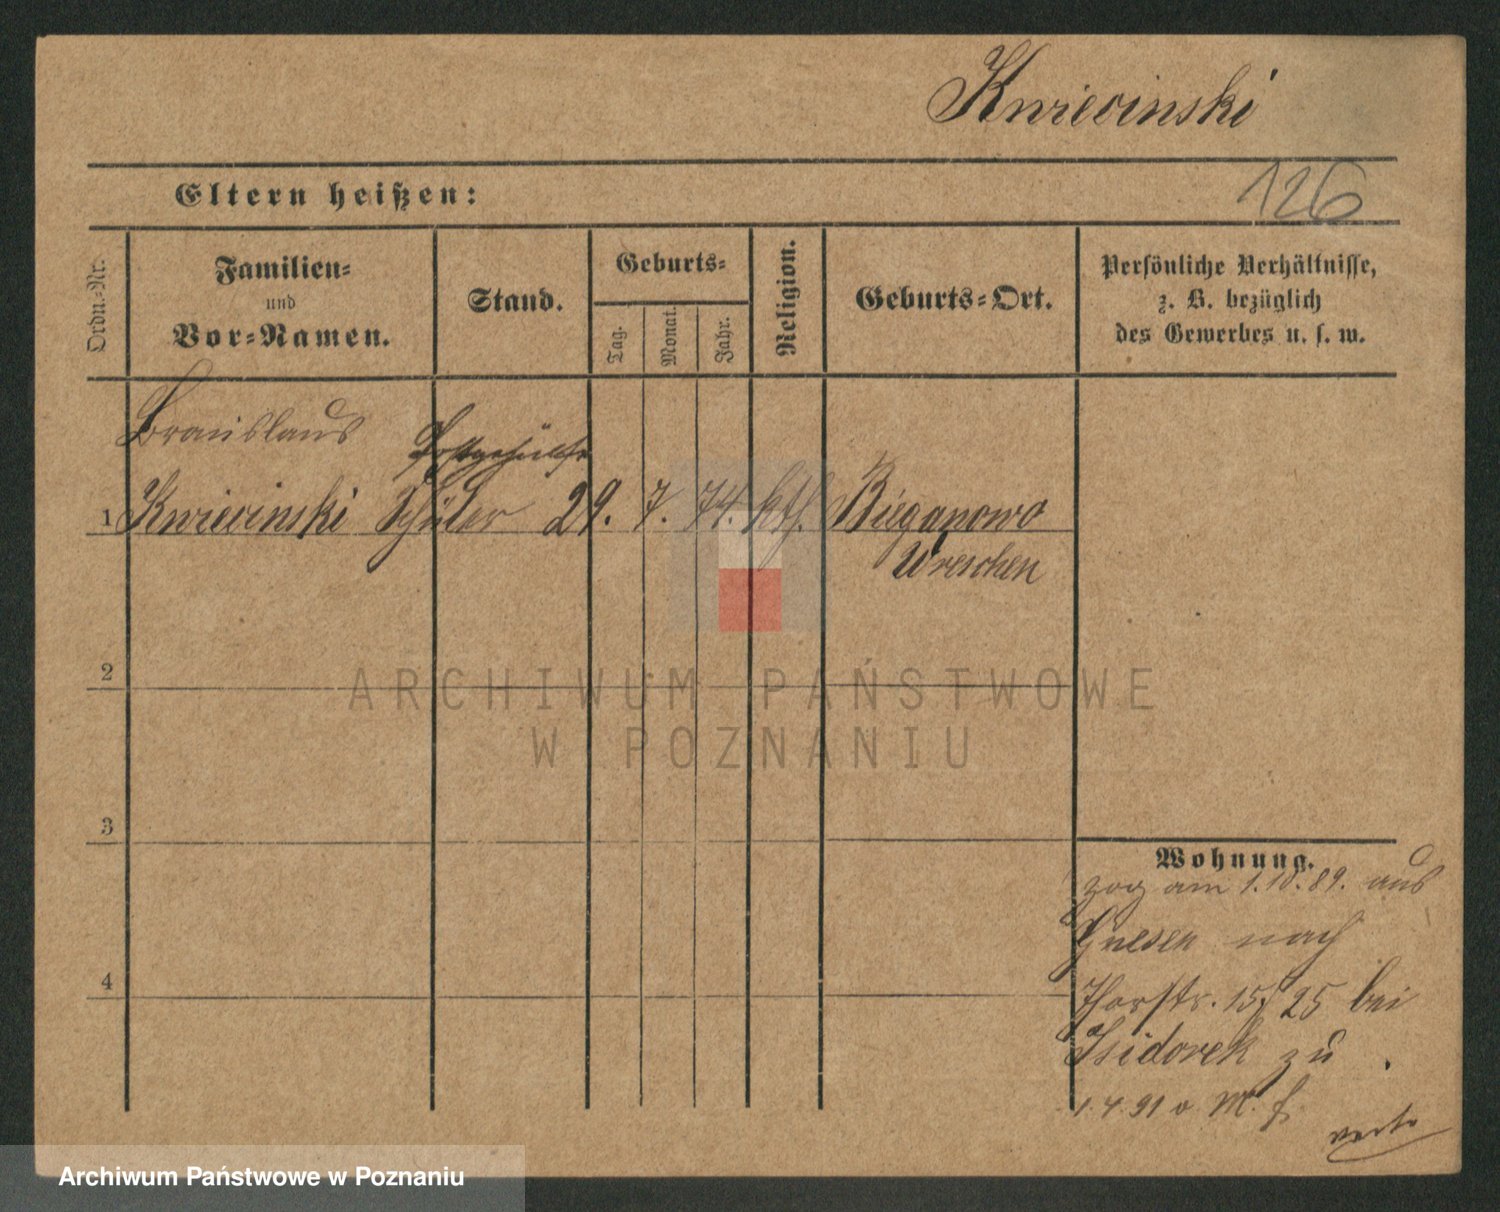 Kwiecinski
126
Eltern heißen:
Ordn.-Nr.
Familien-
und
Vor-Namen.
Stand.
Geburts-
Tag.
Monat.
Jahr.
Religion.
Geburts-Ort.
Persönliche Verhältnisse,
z. B. bezüglich
des Gewerbes u. s. w.
Bronislaus Postgehülfe
1 Kwiecinski Schüler 29. 7. 74. kth. Bieganowo
Wreschen
ARCHIWUM PAŃSTWOWE
W POZNANIU
2
3
4
Wohnung.
zog am 1.10.89. aus
Gnesen nach
15/25 bei
Isidorek zu
1.4.91 v M. f.
verte
Archiwum Państwowe w Poznaniu